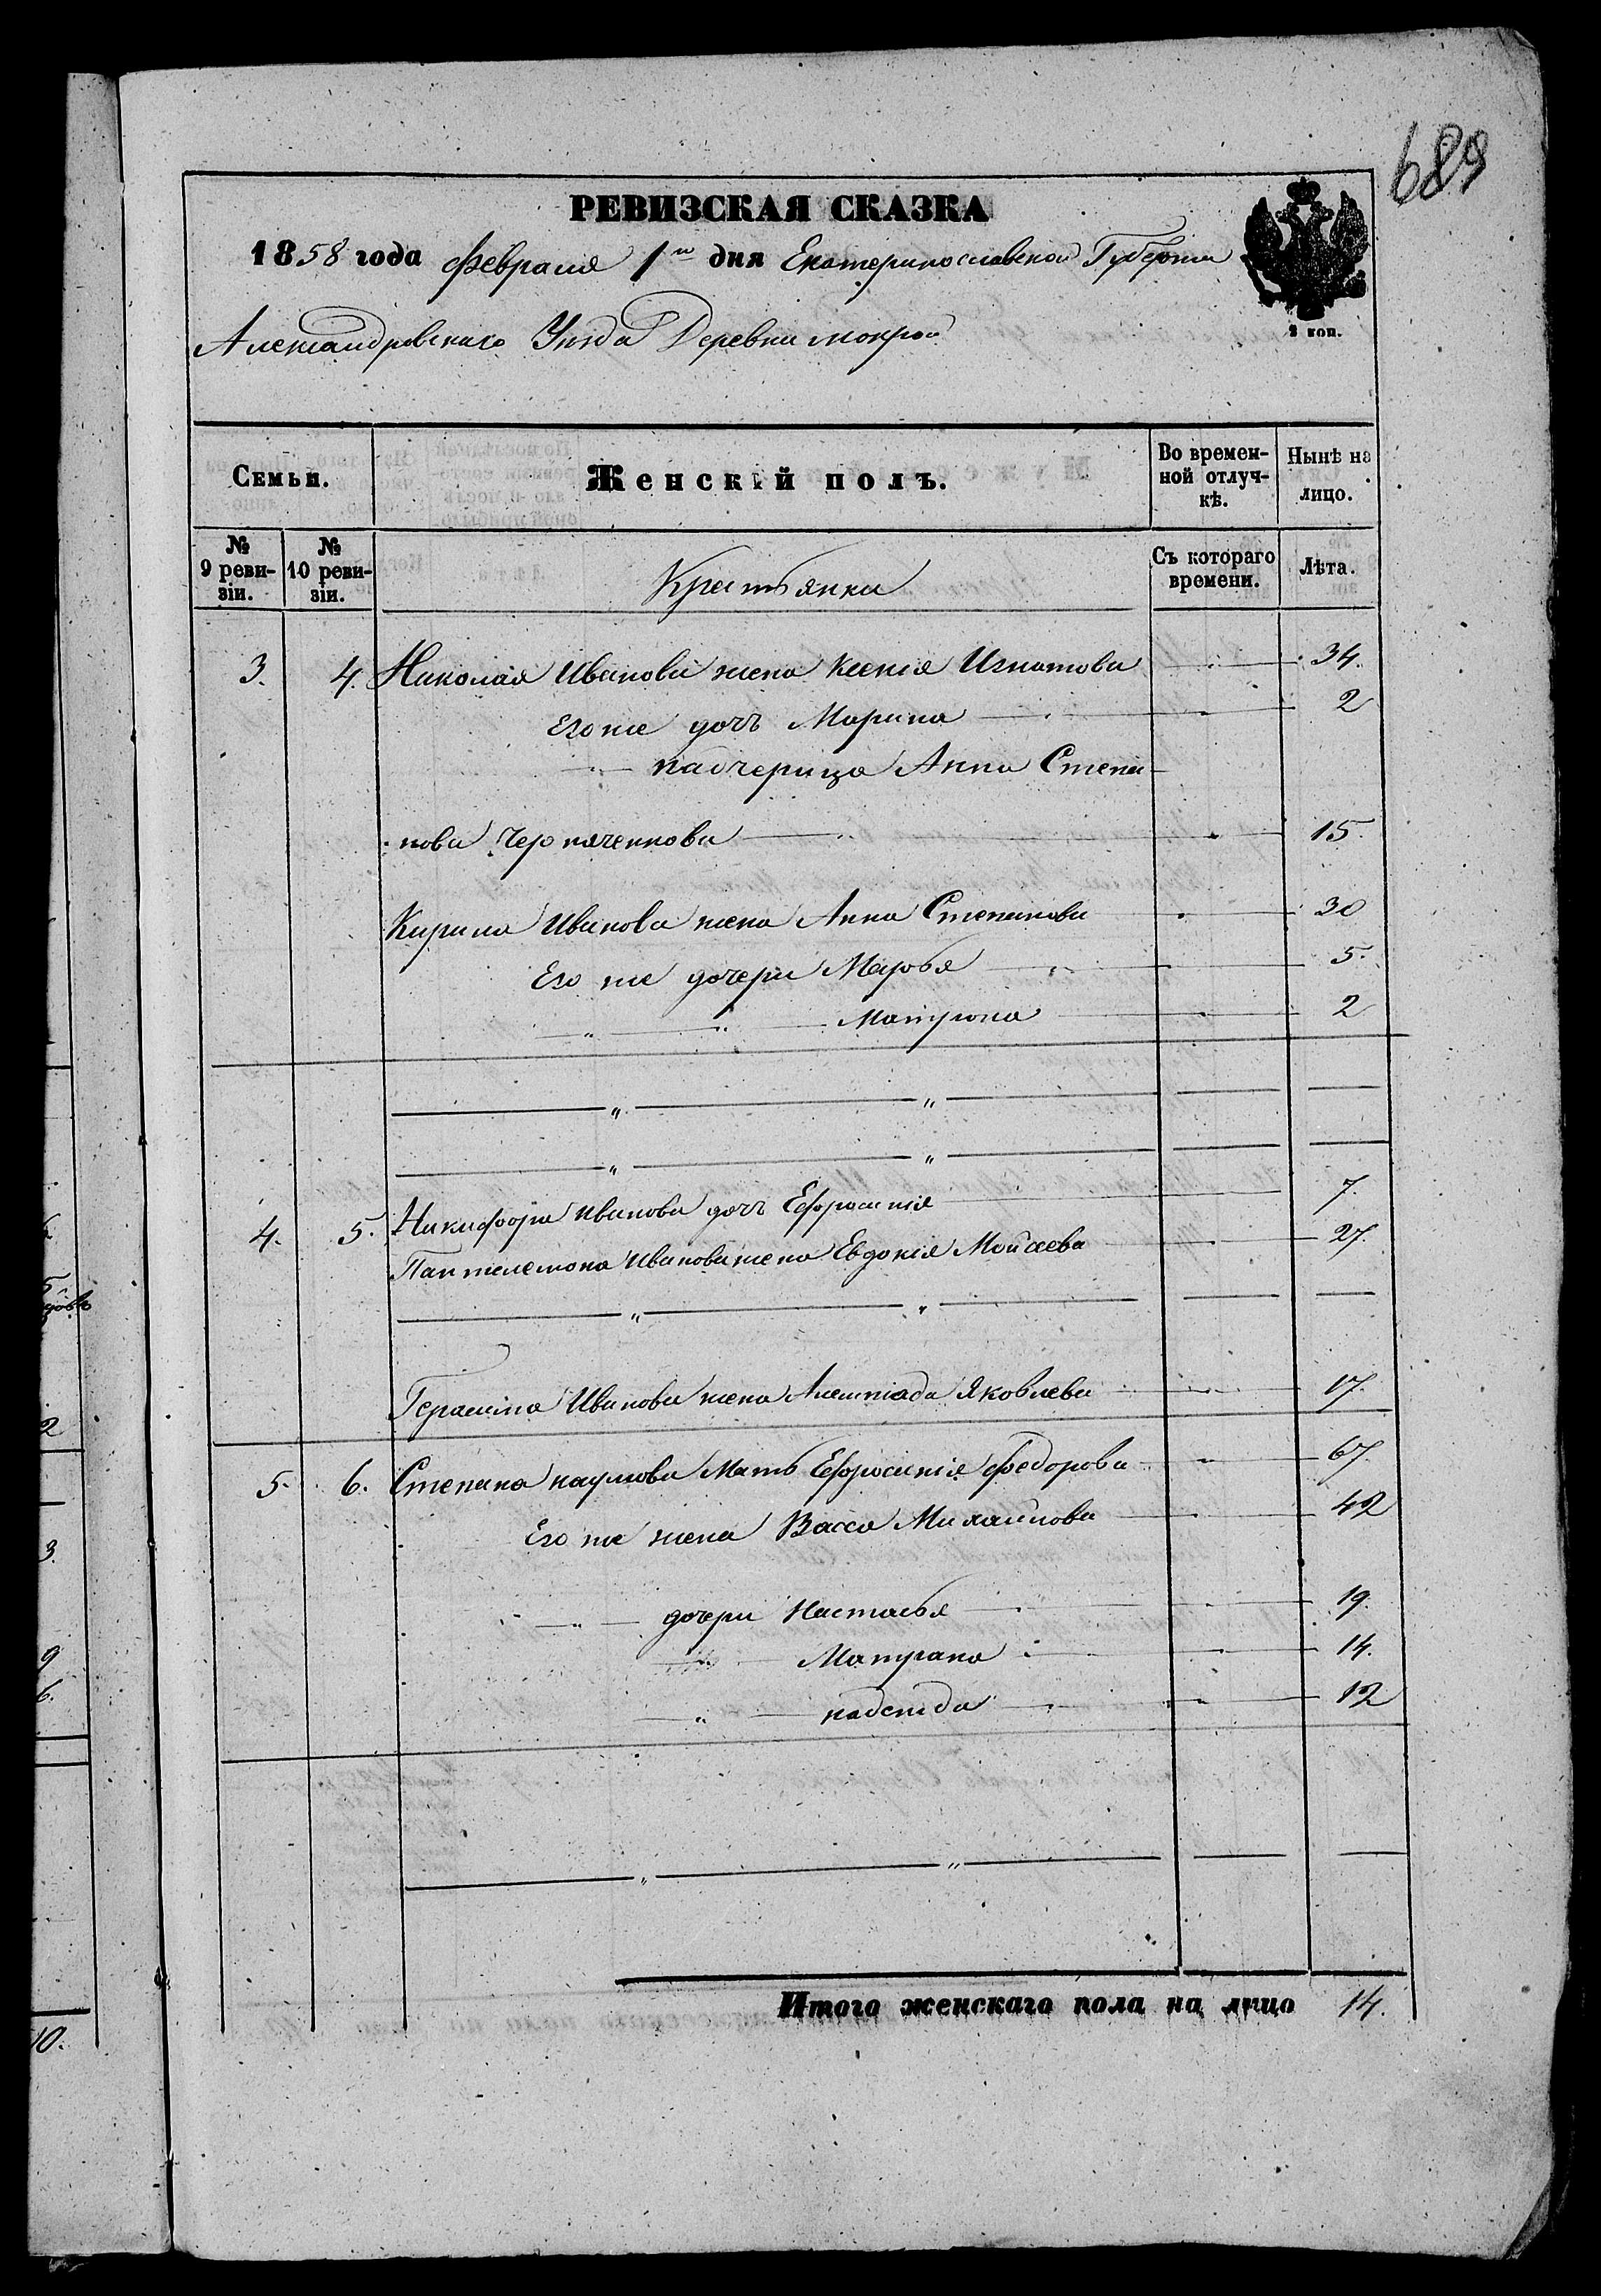 689
РЕВИЗСКАЯ СКАЗКА
1858 года февраля 1го дня Екатеринославской Губернии
2 коп.
Александровскаго Уѣзда Деревни мокрой
Семьи. Женскій полъ. Во времен-ной отлуч-кѣ. Нынѣ на лицо.
№ 9 реви-зіи. № 10 реви-зіи. Крестьянки Съ котораго времени. Лѣта.
3. 4. Николая Иванова жена Ксенія Игнатова 34.
Его же дочь Марина 2
падчерица Анна Степа-
нова 15.
Кирила Иванова жена Анна Степанова 30
Его же дочери Марья 5.
" " Матрона 2
" "
" "
4. 5. Никифора иванова дочь Ефросинія 7.
Пантелемона иванова жена Евдокія Мойсеева 27.
" "
Герасима Иванова жена Яковлева 17.
5. 6. Степана наумова Мать Ефросинія федорова 67.
Его же жена Васса Михайлова 42
" дочери Настасья 19.
" Матрана 14.
" надежда 12
" "
Итого женскаго пола на лицо 14.
5
2
3.
9
6.
10.